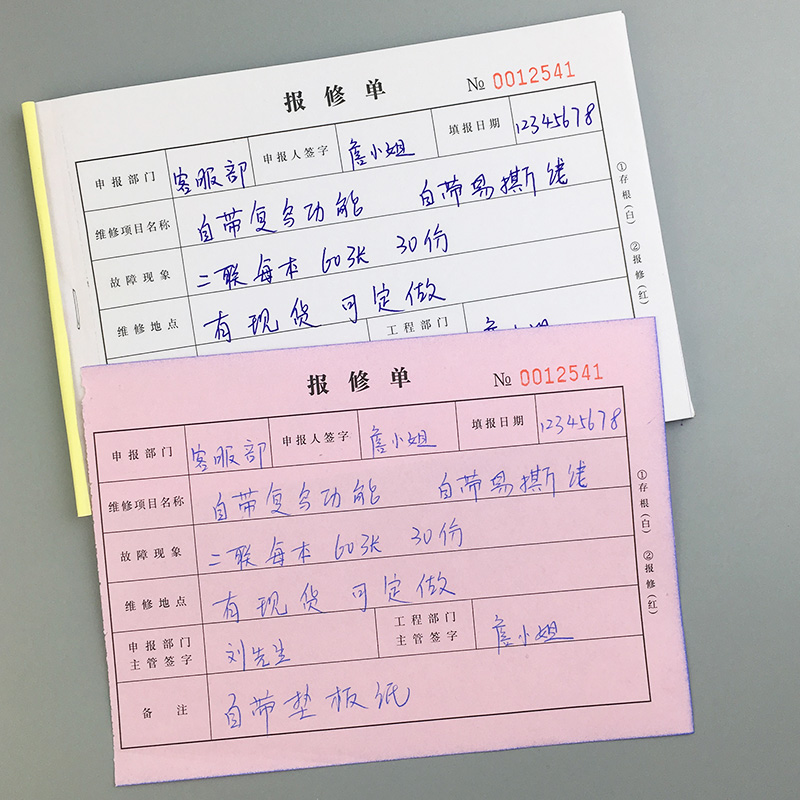 报修单 № 0012541
申报部门 客服部 申报人签字 詹小姐 填报日期 12345678
维修项目名称 自带复写功能 自带易撕线
故障现象 二联每本 60张 30份
维修地点 有现货 可定做
工程部门 詹小姐
①存根(白) ②报修(红)
报修单 № 0012541
申报部门 客服部 申报人签字 詹小姐 填报日期 12345678
维修项目名称 自带复写功能 自带易撕线
故障现象 二联每本 60张 30份
维修地点 有现货 可定做
申报部门主管签字 刘先生 工程部门主管签字 詹小姐
备注 自带垫板纸
①存根(白) ②报修(红)